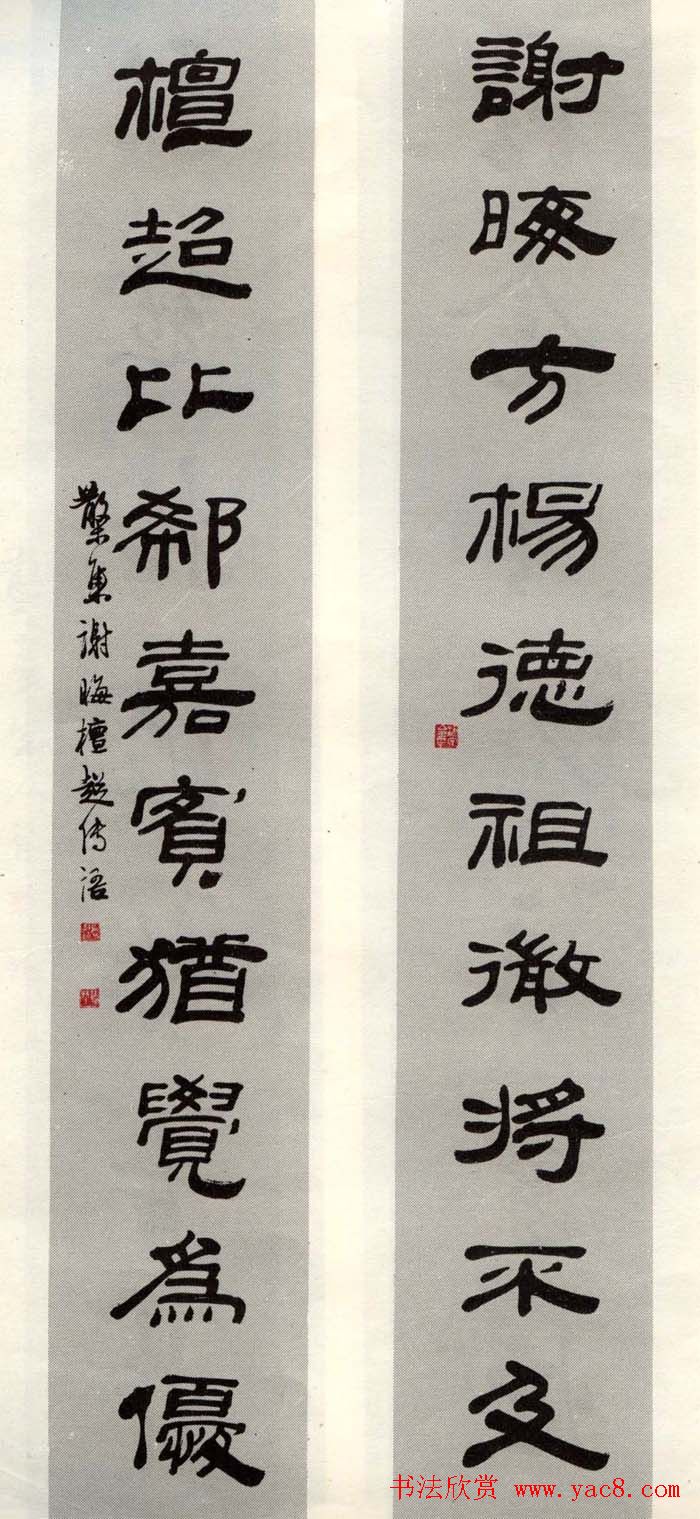 謝晦方楊德祖微將不及
檀超比郗嘉賓猶覺爲優
集謝晦檀超傳語
书法欣赏 www.yac8.com